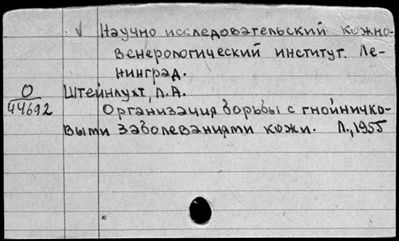 √ Научно исследовательский кожно-
венерологический институт. Ле-
нинград.
О
44692
Штейнлухт, Л.А.
Организация борьбы с гнойничко-
выми заболеваниями кожи. Л., 1955